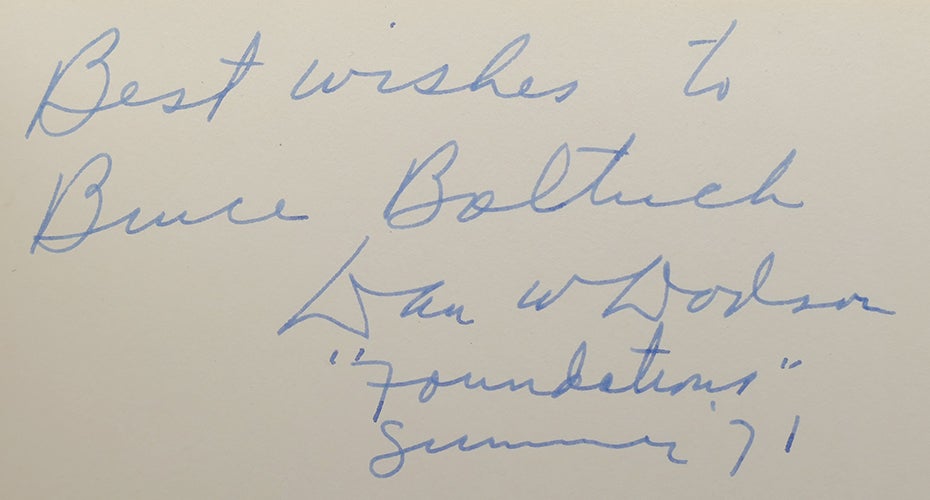 Best wishes to
Bruce Boltuch
Dan W Dodson
"Foundations"
Summer '71